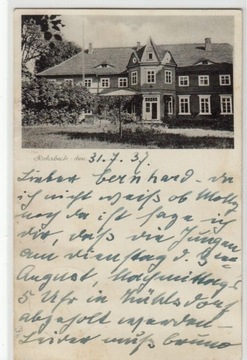 Rohrbach, den 31.7.37.
Lieber Bernhard. da
ich nicht weiß ob Mollx
noch da ist sage ich
dir, daß die Jungen
am dienstag d. 3ten
August, Nachmittags
5 Uhr in Mühlsdorf
abgeholt werden.
Leider muß Benno